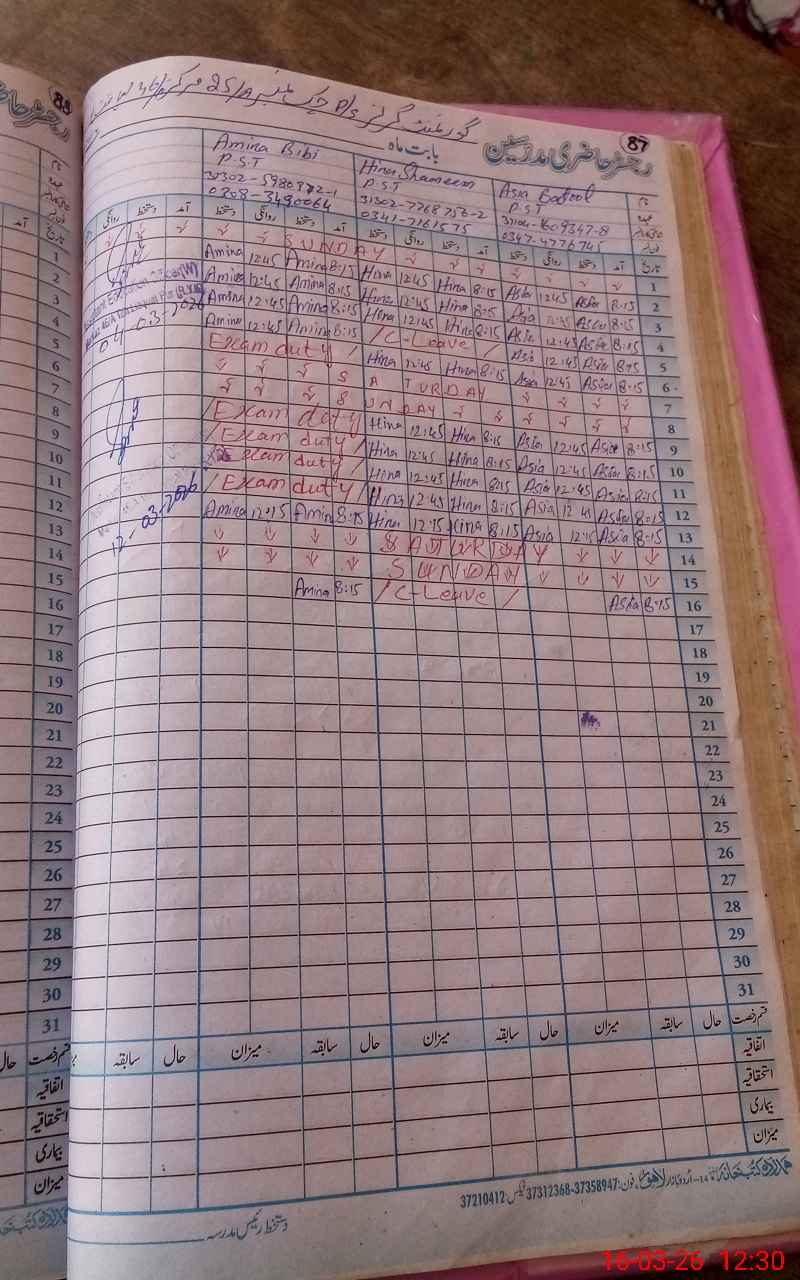 87
رجسٹر حاضری مدرسین
بابت ماہ
گورنمنٹ گرلز P/S چک نمبر 25/A مرکز
Asia Batool
P.S.T
0347-4776745
Hina Shameem
P.S.T
31302-7768756-2
0341-7161575
Amina Bibi
P.S.T
0308-3490064
تاریخ آمد دستخط روانگی دستخط آمد دستخط روانگی دستخط آمد دستخط روانگی دستخط آمد
1 SUNDAY
2 8:15 Asia 12:45 Asia 8:15 Hina 12:45 Hina 8:15 Amina 12:45 Amina
3 8:15 Asia 12:45 Asia 8:15 Hina 12:45 Hina 8:15 Amina 12:45 Amina
4 8:15 Asia 12:45 Asia 8:15 Hina 12:45 Hina 8:15 Amina 12:45 Amina
5 8:15 Asia 12:45 Asia / C-Leave / 8:15 Amina 12:45 Amina
6 8:15 Asia 12:45 Asia 8:15 Hina 12:45 Hina Exam duty /
7 SATURDAY
8 SUNDAY
9 8:15 Asia 12:45 Asia 8:15 Hina 12:45 Hina / Exam duty /
10 8:15 Asia 12:45 Asia 8:15 Hina 12:45 Hina / Exam duty /
11 8:15 Asia 12:45 Asia 8:15 Hina 12:45 Hina Exam duty /
12 8:15 Asia 12:45 Asia 8:15 Hina 12:45 Hina / Exam duty /
13 8:15 Asia 12:15 Asia 8:15 Hina 12:15 Hina 8:15 Amina 12:15 Amina
14 SATURDAY
15 SUNDAY
16 8:15 Asia / C-Leave / 8:15 Amina
17
18
19
20
21
22
23
24
25
26
27
28
29
30
31
04-03-2026
12-03-2026
قسم رخصت حال سابقہ میزان حال سابقہ میزان حال سابقہ میزان حال سابقہ
اتفاقیہ
استحقاقیہ
بیماری
میزان
ہمدرد کتب خانہ
اردو بازار لاہور، فون: 37358947-37312368 فیکس: 37210412
دستخط رئیس مدرسہ
83
رجسٹر حاضری
آمد
1
2
3
4
5
6
7
8
9
10
11
12
13
14
15
16
17
18
19
20
21
22
23
24
25
26
27
28
29
30
31
قسم رخصت حال
اتفاقیہ
استحقاقیہ
بیماری
میزان
16-03-26 12:30